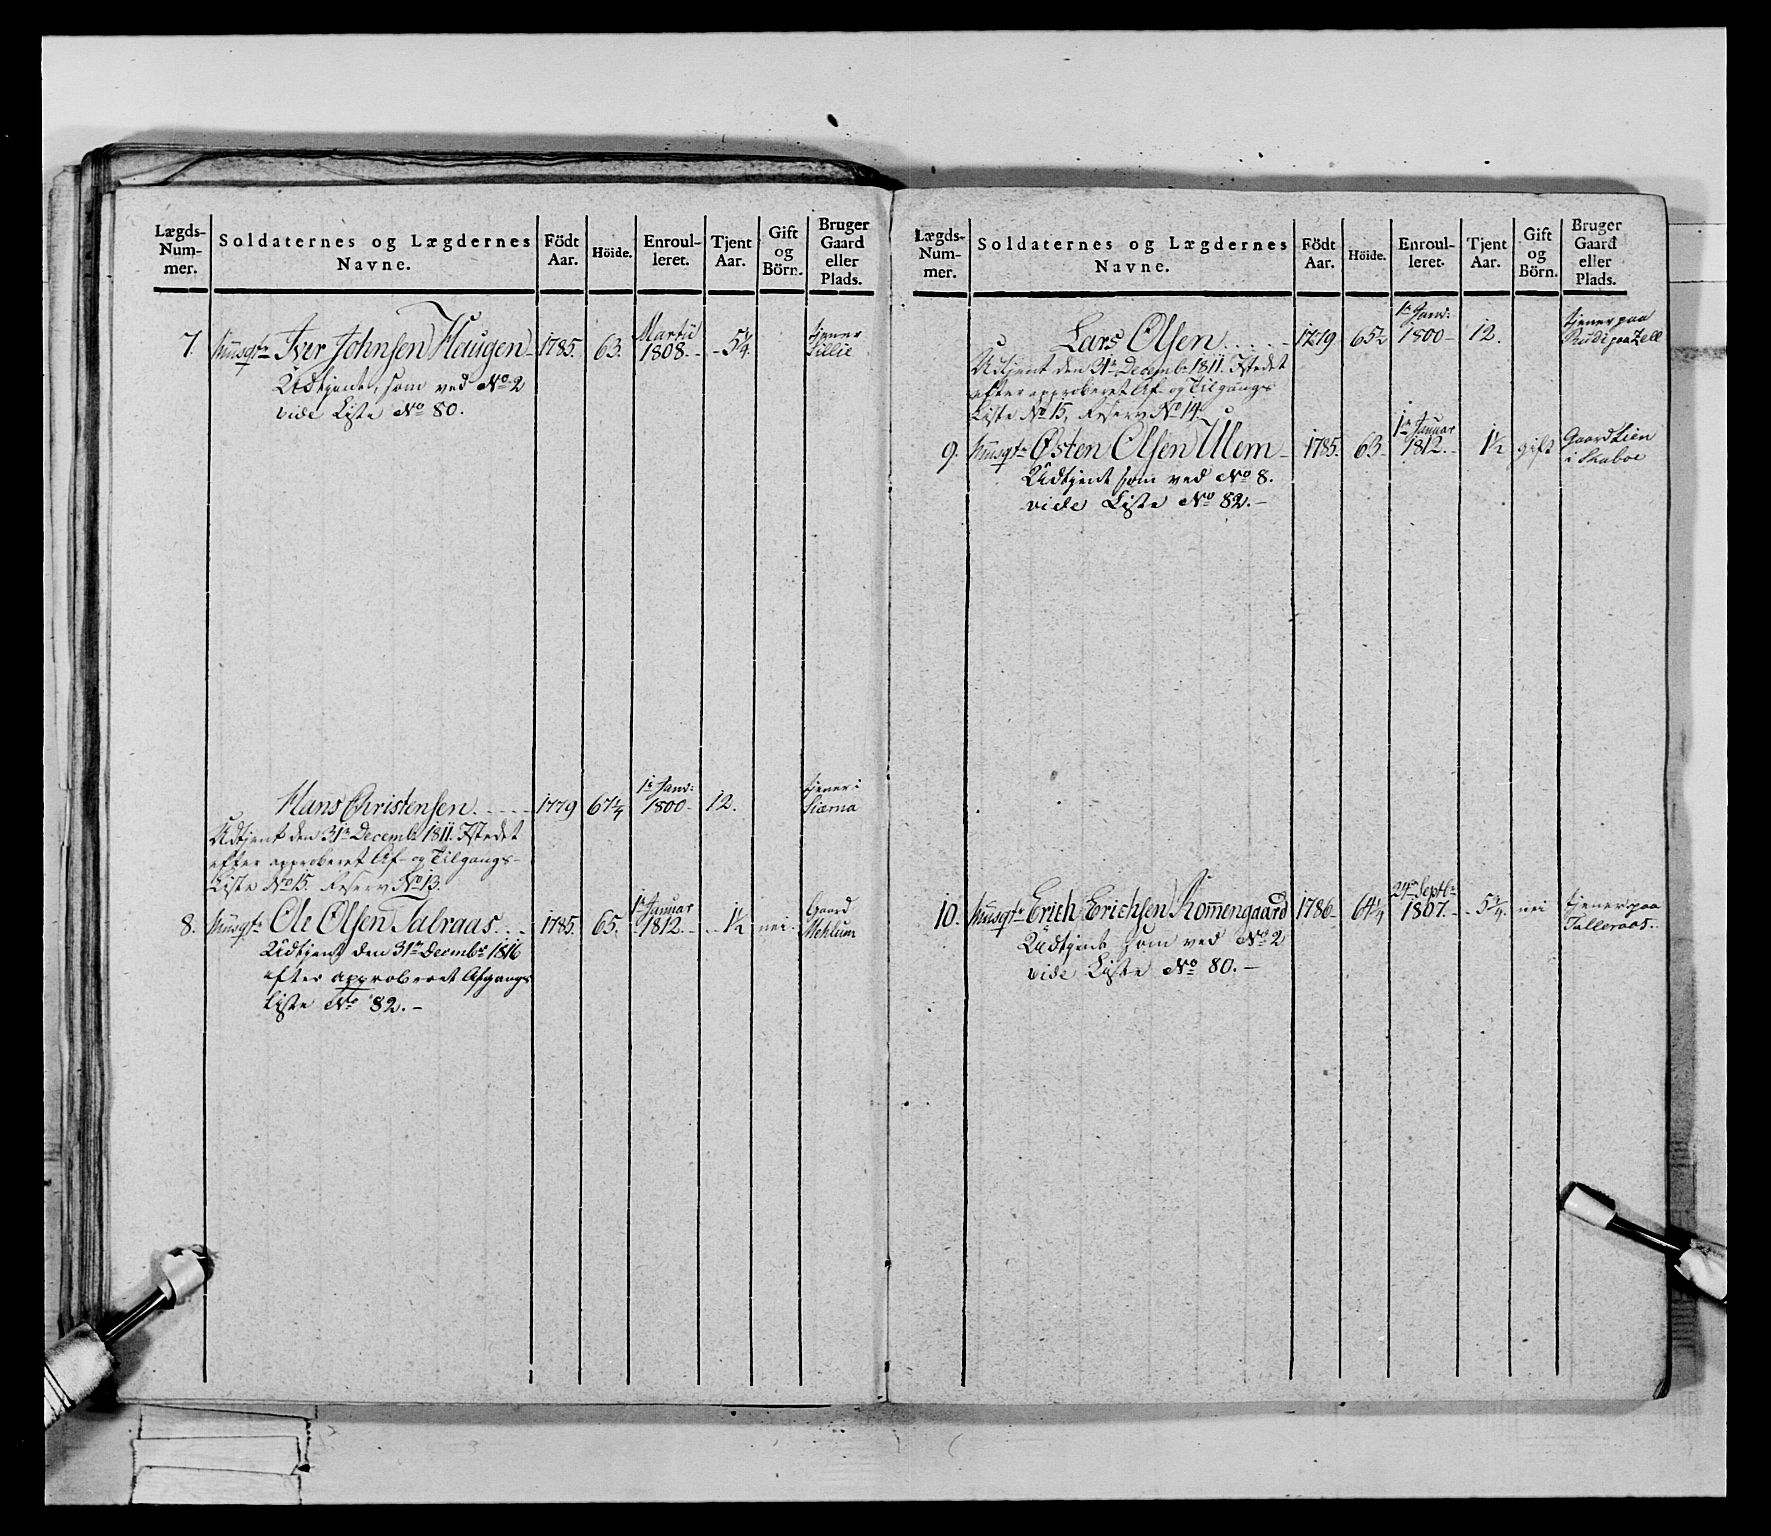 Lægds-Num-mer. Soldaternes og Lægdernes Navne. Födt Aar. Höide. Enroul-leret. Tjent Aar. Gift og Börn. Bruger Gaard eller Plads.
Martii tjener
7. Musqtr Iver Johnsen Haugen 1785. 63. 1808. 5¼ Lillie
Udtjent, som ved No 2
vide Liste No 80.
1s Janv: tjener i
Hans Christensen 1779 67¼ 1800 12.
Udtjent den 31te Decembr 1811. Istedet
efter approberet Af- og Tilgangs-
Liste No 15. Reserv No 13.
1te Januar Gaard
8. Musqtr Ole Olsen Talraas 1785. 65. 1812. 1½ nei. Mehlum
Udtjent den 31te Decembr 1816
efter approberet Afgangs
Liste No 82.
Lægds-Num-mer. Soldaternes og Lægdernes Navne. Födt Aar. Höide. Enroul-leret. Tjent Aar. Gift og Börn. Bruger Gaard eller Plads.
1s Janv: tjener paa
Lars Olsen 1779 65½ 1800 12.
Udtjent den 31te Decembr 1811. Istedet
efter approberet Af- og Tilgangs
Liste No 15, Reserv No 14.
1te Januar Gaard Lien
9. Musqtr Østen Olsen Ulem 1785. 63 1812. 1½ gift i Skaboe
Udtjent som ved No 8.
vide Liste No 82.
Septbr tjener paa
10. Musqtr Erich Erichsen Kommengaard 1786 64¼ 1807. 5¾ nei Talleraas.
Udtjent som ved No 2
vide Liste No 80.